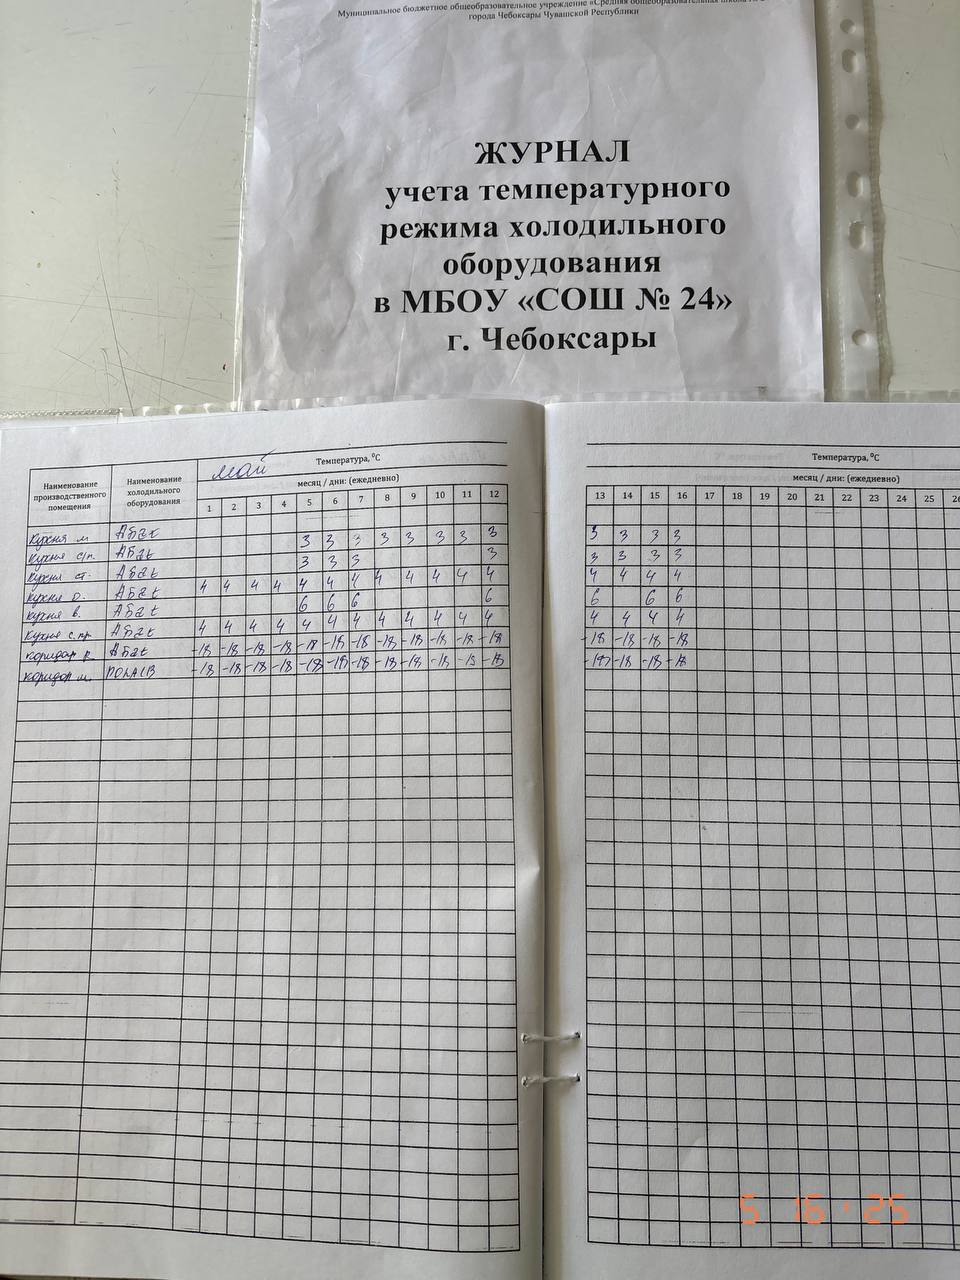 Муниципальное бюджетное общеобразовательное учреждение «Средняя общеобразовательная школа №
города Чебоксары Чувашской Республики
ЖУРНАЛ
учета температурного
режима холодильного
оборудования
в МБОУ «СОШ № 24»
г. Чебоксары
Наименование производственного помещения
Наименование холодильного оборудования
май
Температура, °С
месяц / дни: (ежедневно)
1 2 3 4 5 6 7 8 9 10 11 12
Температура, °С
месяц / дни: (ежедневно)
13 14 15 16 17 18 19 20 21 22 23 24 25 26
Кухня м 3 3 3 3 3 3 3 3 3 3 3 3
Кухня с/п. 3 3 3 3 3 3 3 3
Кухня ст. 4 4 4 4 4 4 4 4 4 4 4 4 4 4 4 4
Кухня о. 6 6 6 6 6 6 6
Кухня в. 4 4 4 4 4 4 4 4 4 4 4 4 4 4 4 4
Кухня с.пр
коридор -18 -18 -18 -18 -18 -18 -18 -18 -18 -18 -18 -18 -18 -18 -18 -18
коридор м. -18 -18 -18 -18 -18 -18 -18 -18 -18 -18 -18 -18 -18 -18 -18
5 16 '25